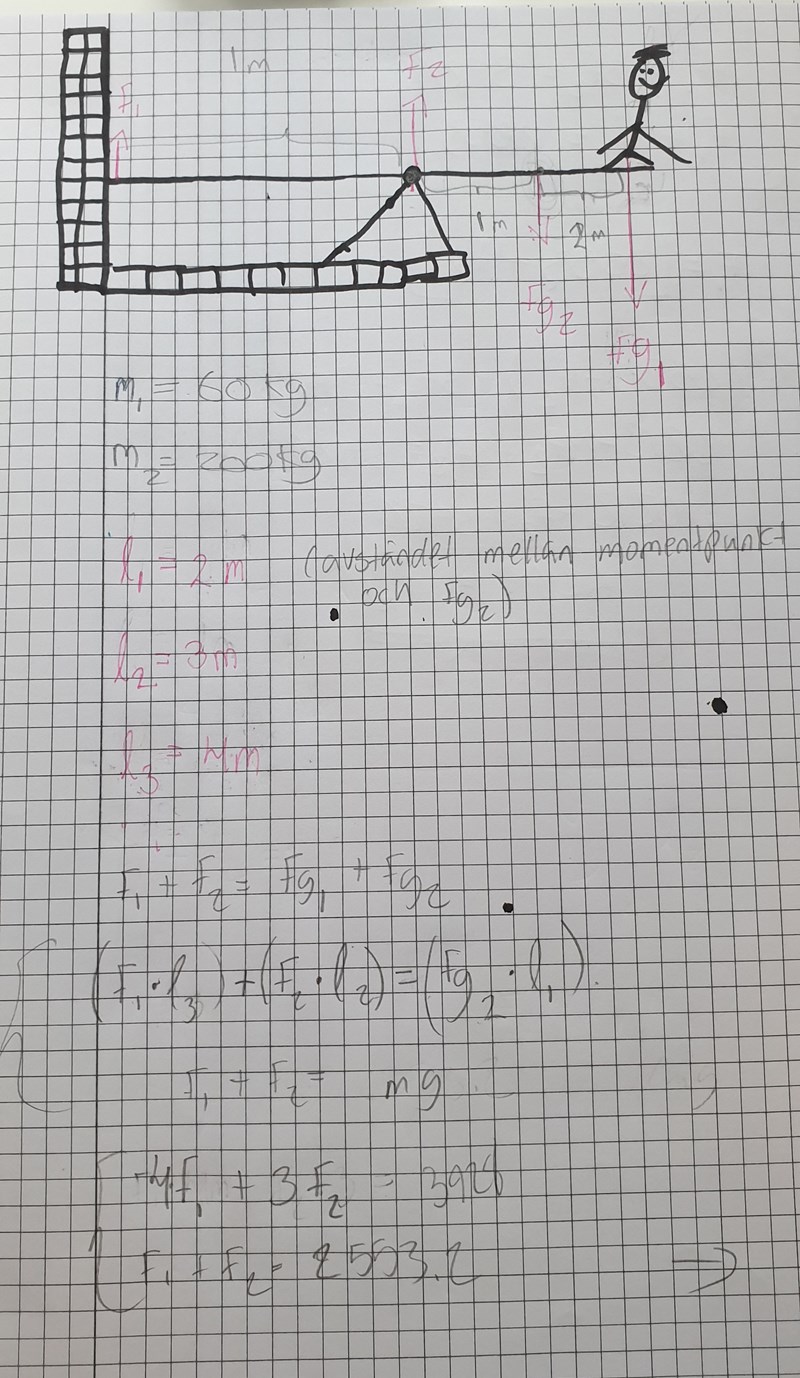 1m
F₂
F₁
1m
2m
Fg₂
Fg₁
m₁ = 60 kg
m₂ = 200 kg
l₁ = 2 m (avståndet mellan momentpunkt
och Fg₂)
l₂ = 3m
l₃ = 4m
F₁ + F₂ = Fg₁ + Fg₂
(F₁ · l₃) + (F₂ · l₂) = (Fg₂ · l₁).
F₁ + F₂ = mg
4F₁ + 3F₂ = 3924
F₁ + F₂ = 2553.2 ⇒